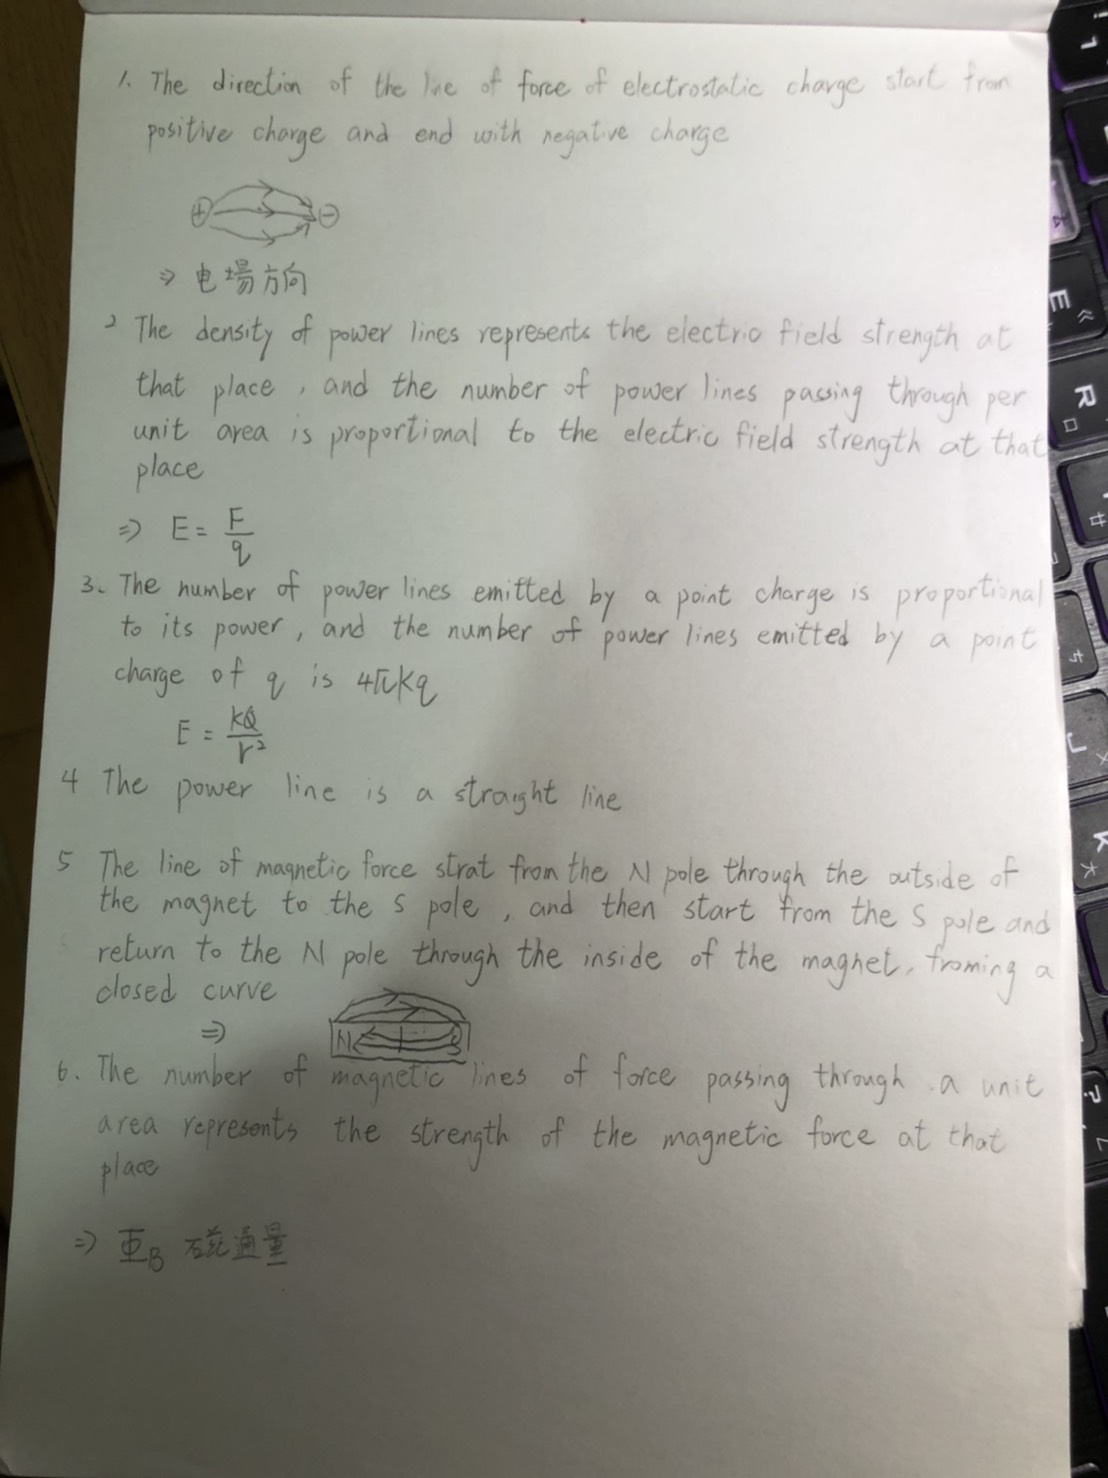 1. The direction of the line of force of electrostatic charge start from
positive charge and end with negative charge
+ -
⇒ 电場方向
2 The density of power lines represents the electric field strength at
that place , and the number of power lines passing through per
unit area is proportional to the electric field strength at that
place
⇒ E = F/q
3. The number of power lines emitted by a point charge is proportional
to its power, and the number of power lines emitted by a point
charge of q is 4πkq
E = kQ/r²
4 The power line is a straight line
5 The line of magnetic force strat from the N pole through the outside of
the magnet to the S pole , and then start from the S pole and
return to the N pole through the inside of the magnet, froming a
closed curve
⇒ N S
6. The number of magnetic lines of force passing through a unit
area represents the strength of the magnetic force at that
place
⇒ Φ_B 磁通量
E
R
J
K